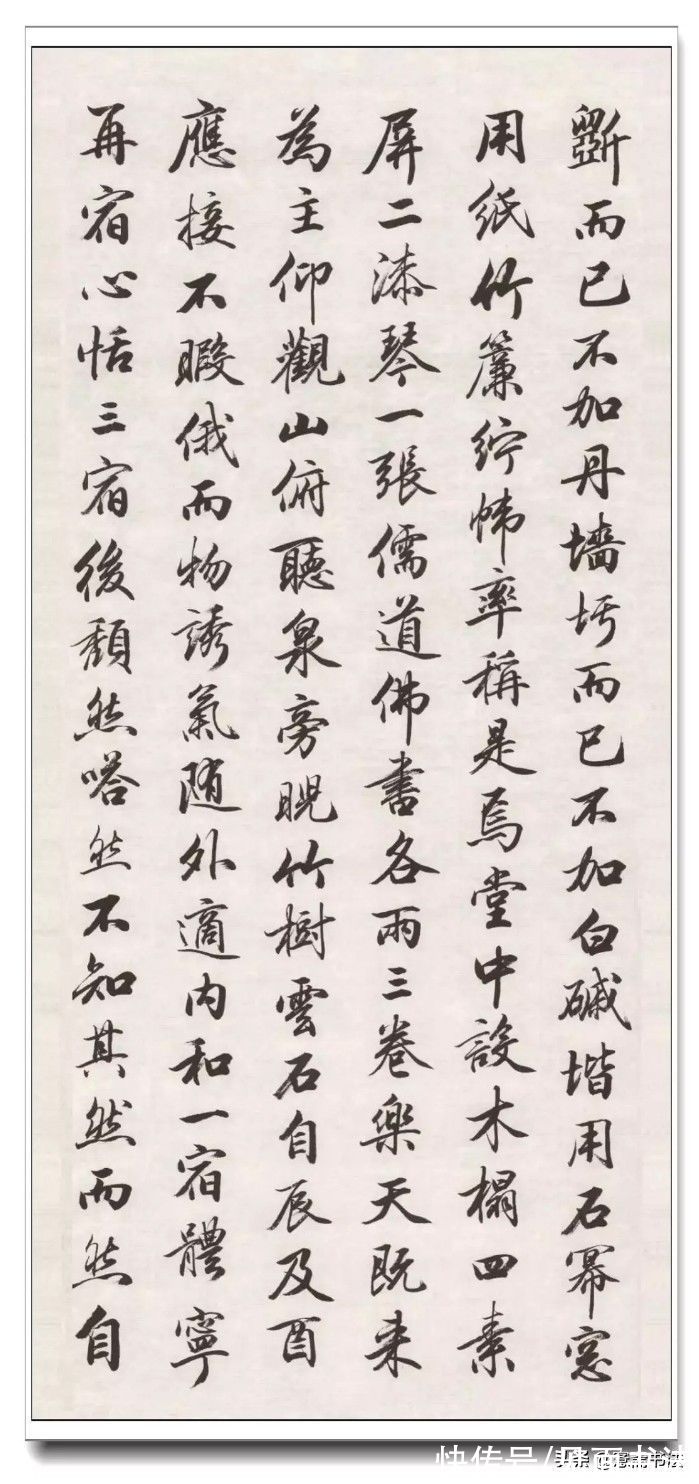 斲而已不加丹墻圬而已不加白碱堦用石冪窓
用紙竹簾紵幃率稱是焉堂中設木榻四素
屏二漆琴一張儒道佛書各兩三卷樂天既来
為主仰觀山俯聽泉旁睨竹樹雲石自辰及酉
應接不暇俄而物誘氣随外適内和一宿體寧
再宿心恬三宿後頹然嗒然不知其然而然自